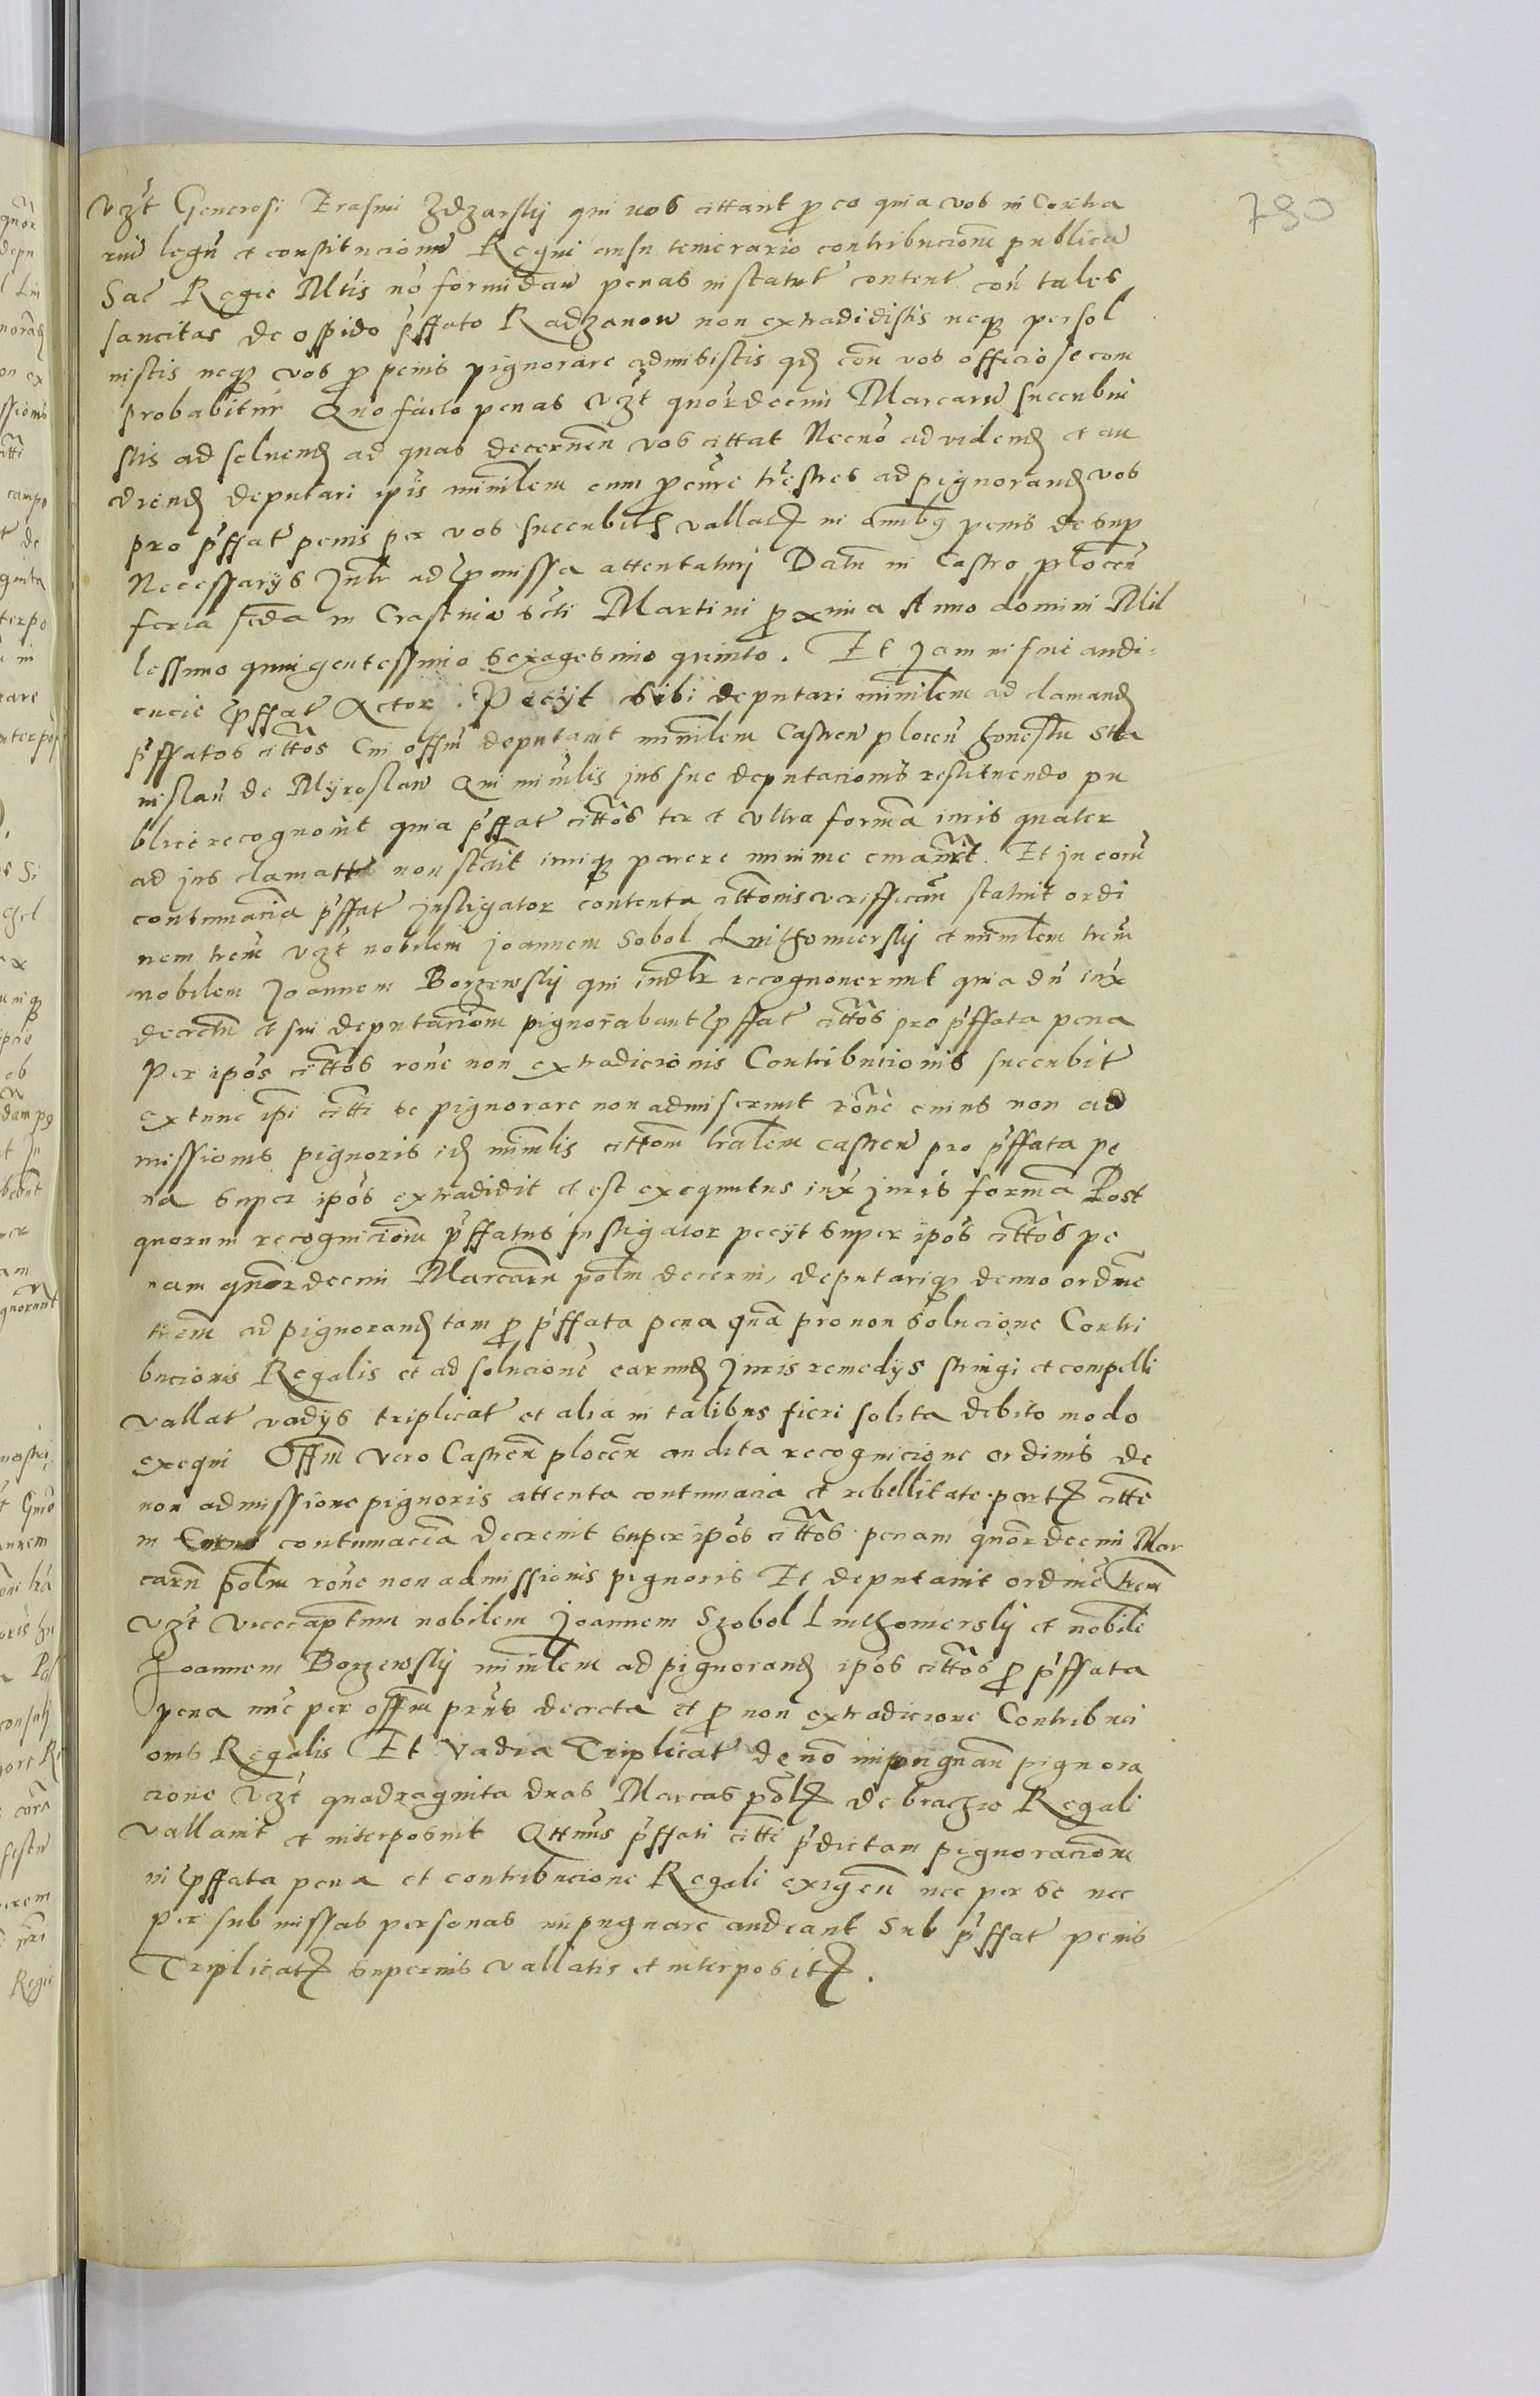 780
vzt Generosi Erasmi Zdzarskij qui vos cittant p eo quia vos in Contra
riu legu et constitucionu Regni ausu temerario contribucione publica
Sac Regie Mtis no formidan penas in statut content con tales
sancitas de oppido pffato Radzanow non extradidistis neqz persol
vistis neqz vos p penis pignorare admisistis qd con vos officiose com
probabitur Quo facto penas vzt quordecim Marcaru succubui
stis ad solvend ad quas decernen vos cittat Necno ad vidend et au
diend deputari ipis minlem cum pcure trestres ad pignorand vos
pro pffat penis per vos succubit vallatz in omibq penis desup
Necessarijs Jntr ad pmissa attentaturj Datu in Castro plocen
feria scda in Crastino scti Martini pxima Anno domini Mil
lessimo quingentessimo sexagesimo quinto . Et Jam in sue audi
encie pffat Actor . Pecijt sibi deputari minlem ad clamand
pffatos cittos Cui offm deputavit minlem Castren plocen honestu Sta
nislau de Myroslaw Qui minlis jus sue deputacionis restituendo pu
blice recognovit quia pffat cittos ter et ultra forma iuris quater
ad jus clamatt non stait iuriqz parere minime curavit . Et jn coru
contumacia pffat jnstigator contenta cittonis verifficau statuit ordi
nem trem vzt nobilem joannem Sobol Luthomierskij et minlem trem
nobilem Joannem Borzewskij qui indlr recognoverunt quia du iux
decretu et sui deputacione pignorabant pffat cittos pro pffata pena
Per ipos cittos rone non extradicionis Contribucionis succubit
ex tunc ipi citti se pignorare non admiserunt rone cuius non ad
missionis pignoris id minlis cittom lralem castren pro pffata pe
na super ipos extradidit et est exequutus iux juris forma Post
quorum recognicione pffatus jnstigator pecijt super ipos cittos pe
nam quordecim Marcaru polm decerni, deputariqz denuo ordine
trem ad pignorand tam p pffata pena qua pro non solucione Contri
bucionis Regalis et ad solucione earund juris remedijs stringi et compelli
vallat vadijs triplicat et alia in talibus fieri solita debito modo
exequi Offm vero Castren plocen audita recognicione ordinis de
non admissione pignoris attenta contumacia et rebellitate partz citte
in Coru contumacia decrevit super ipos cittos penam quordecim Mar
caru polm rone non admissionis pignoris Et deputavit ordine trem
vzt vicecaptnu nobilem Joannem Szobol Luthomerskij et nobile
Joannem Borzewskij minlem ad pignorand ipos cittos p pffata
pena nuc per offm prns decreta et p non extradicione Contribuci
onis Regalis Et vadia Triplicat de no impugnan pignora
cione vzt quadraginta duas Marcas polz de brachio Regali
vallavit et interposuit Qttnus pffati citti pdictam pignoracione
in pffata pena et contribucione Regali exigen nec per se nec
per submissas personas impugnare audeant Sub pffat penis
Triplicatz supernis vallatis et interpositz .